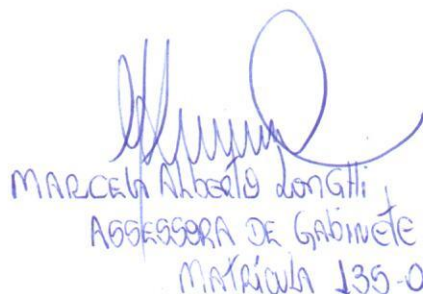 MARCELA ALBERTO LONGHI
ASSESSORA DE GABINETE
MATRÍCULA 135-0